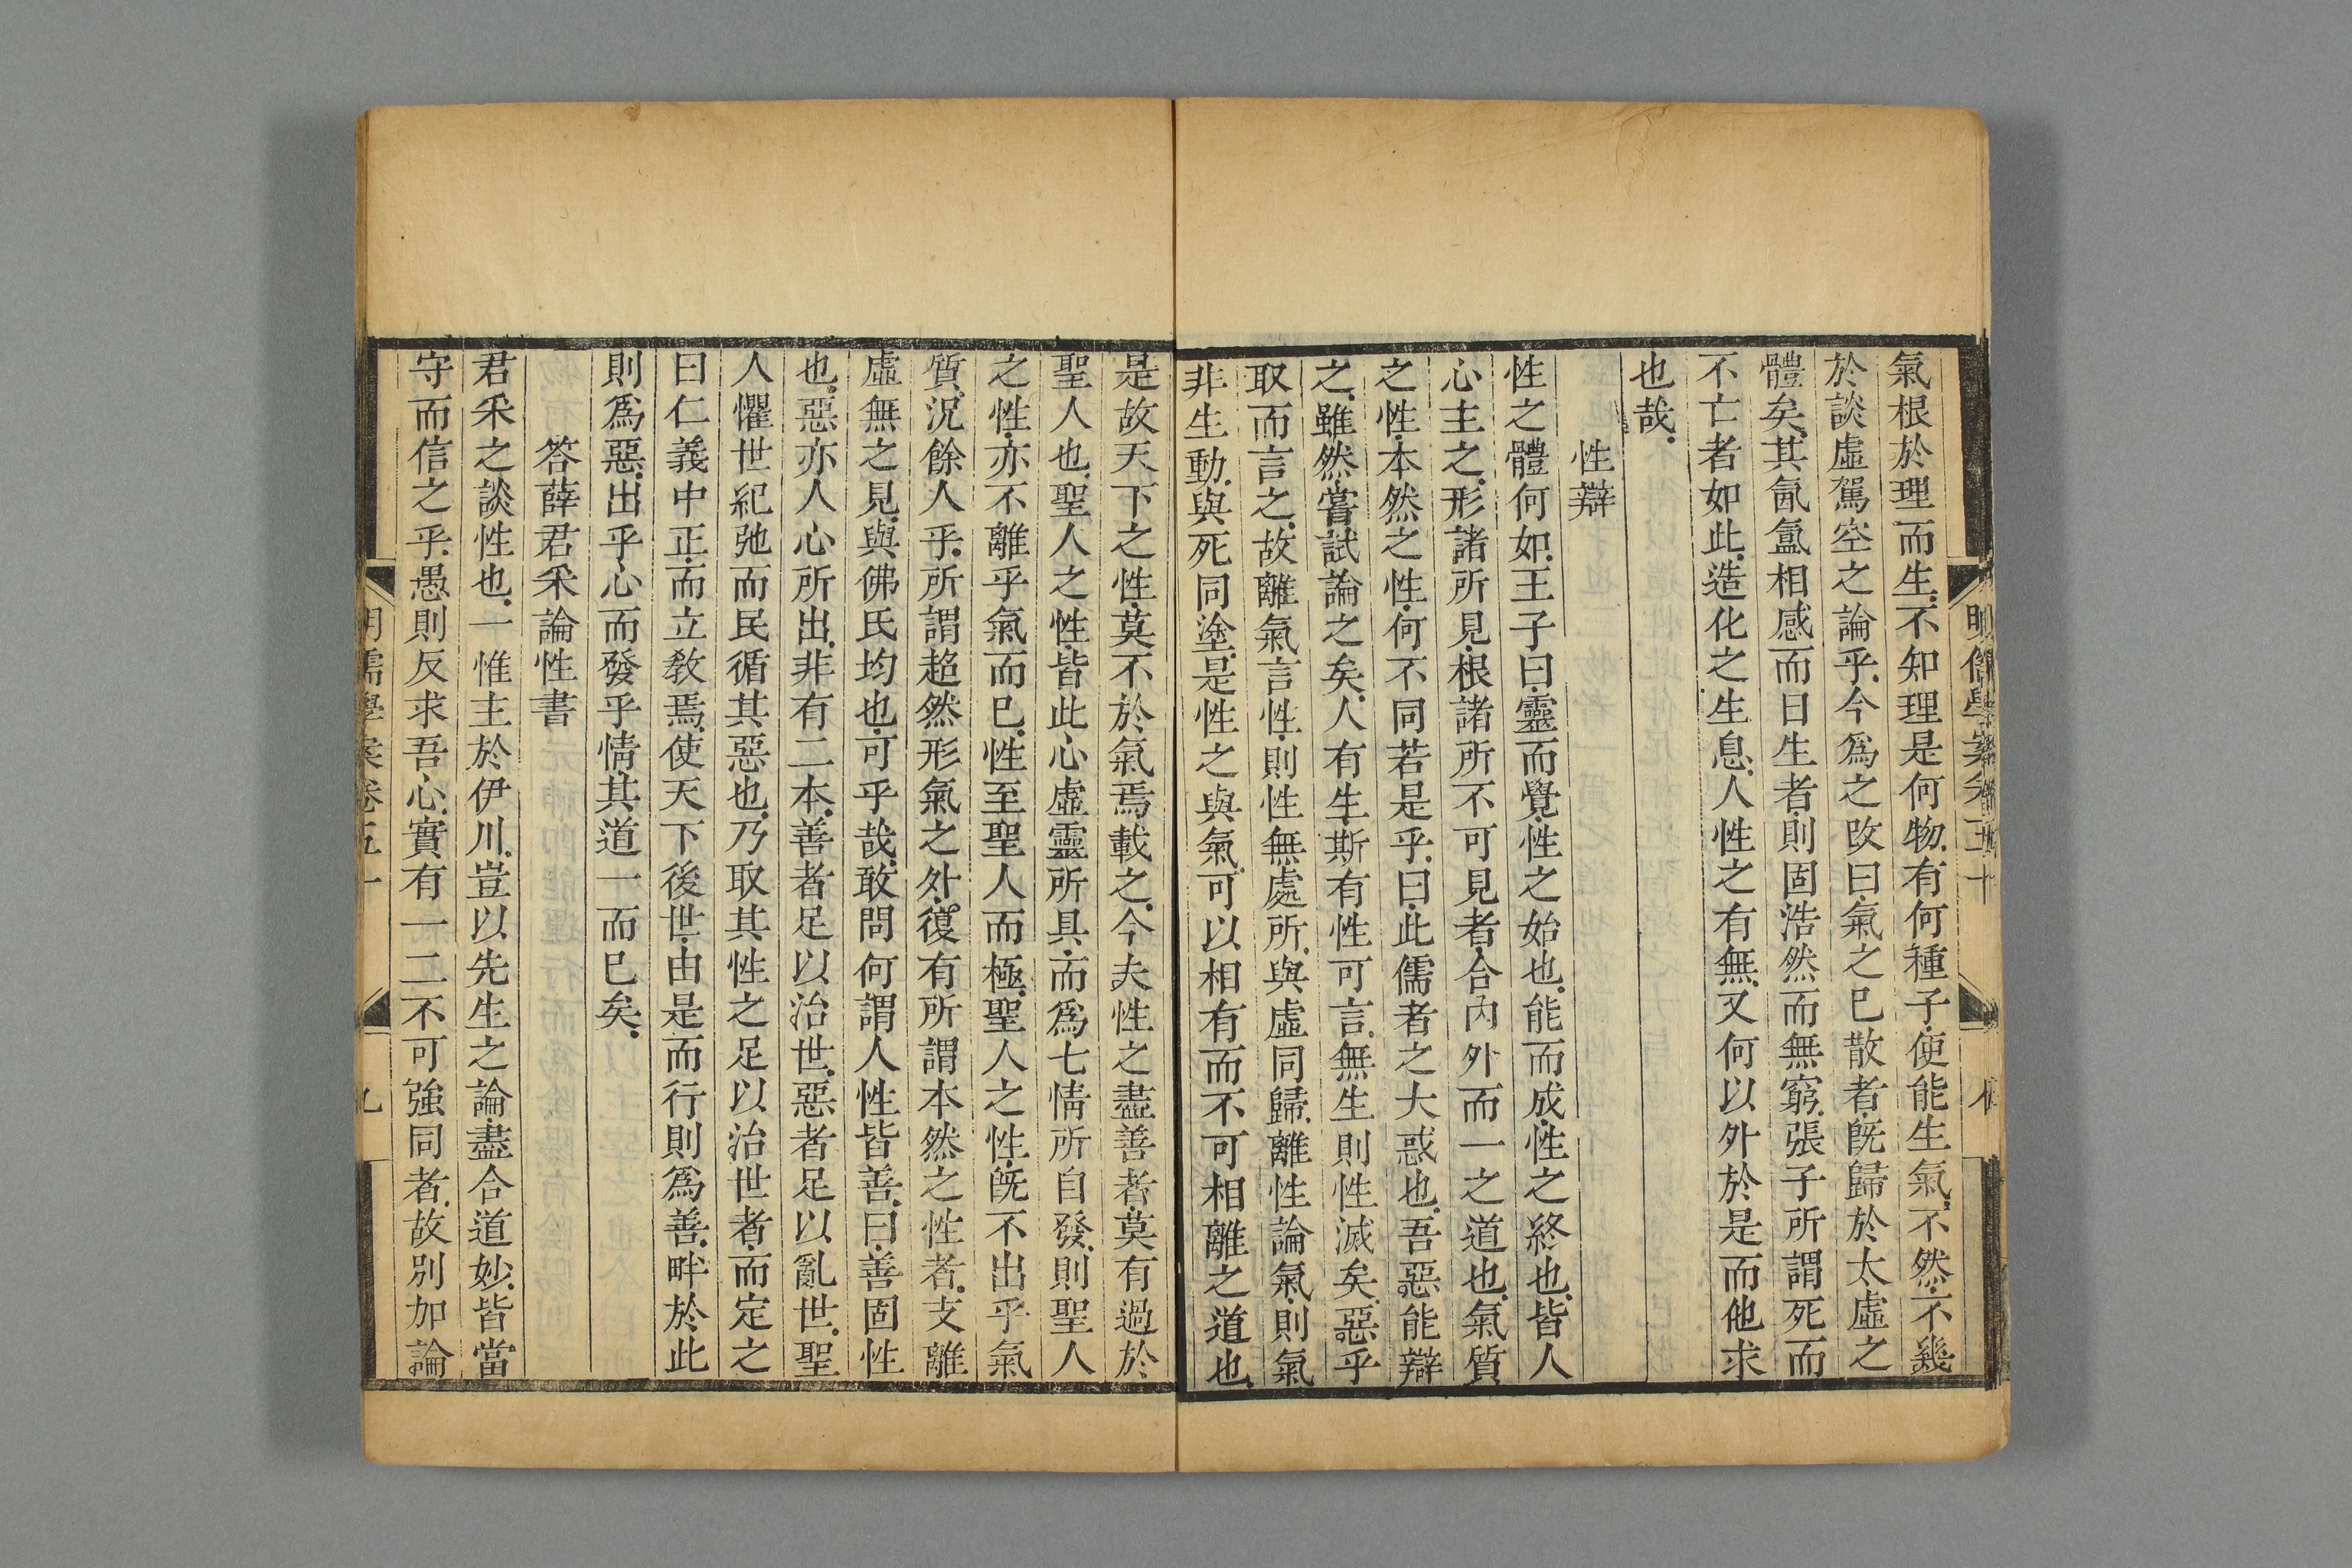 氣根於理而生.不知理是何物.有何種子.使能生氣.不然.不幾
於談虛駕空之論乎.今爲之改曰.氣之已散者.旣歸於太虛之
體矣.其氤氳相感而日生者.則固浩然而無窮.張子所謂死而
不亡者如此.造化之生息.人性之有無.又何以外於是而他求
也哉.
性辯
性之體何如.王子曰.靈而覺.性之始也.能而成.性之終也.皆人
心主之.形諸所見.根諸所不可見者.合內外而一之道也.氣質
之性.本然之性.何不同若是乎.曰.此儒者之大惑也.吾惡能辯
之.雖然.嘗試論之矣.人有生.斯有性可言.無生則性滅矣.惡乎
取而言之.故離氣言性.則性無處所.與虛同歸.離性論氣.則氣
非生動.與死同塗.是性之與氣.可以相有而不可相離之道也.
是故天下之性.莫不於氣焉載之.今夫性之盡善者.莫有過於
聖人也.聖人之性.皆此心虛靈所具.而爲七情所自發.則聖人
之性.亦不離乎氣而已.性至聖人而極.聖人之性.旣不出乎氣
質.況餘人乎.所謂超然形氣之外.復有所謂本然之性者.支離
虛無之見.與佛氏均也.可乎哉.敢問何謂人性皆善.曰.善固性
也.惡亦人心所出.非有二本.善者足以治世.惡者足以亂世.聖
人懼世紀弛而民循其惡也.乃取其性之足以治世者.而定之
曰仁義中正.而立敎焉.使天下後世.由是而行則爲善.畔於此
則爲惡.出乎心而發乎情.其道一而已矣.
答薛君采論性書
君采之談性也.一惟主於伊川.豈以先生之論.盡合道妙.皆當
守而信之乎.愚則反求吾心.實有一二不可強同者.故別加論
明儒學案卷五十
八
明儒學案卷五十
九